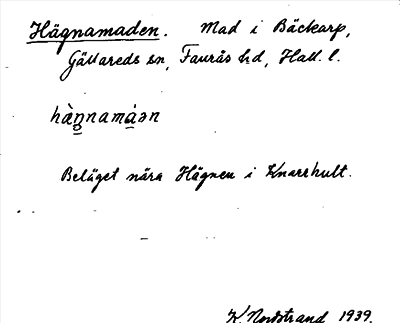 Hägnamaden. Mad i Bäckarp,
Gällareds sn, Faurås hd, Hall. l.
hàŋnamàən
Beläget nära Hägnen i Knarrhult.
K. Nordstrand 1939.